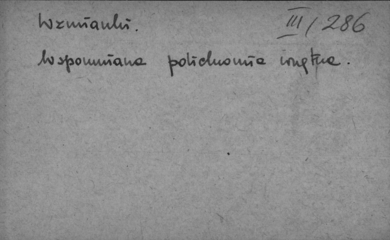 Wzmianki. III/286
Wspomniana polichromia wnętrza.